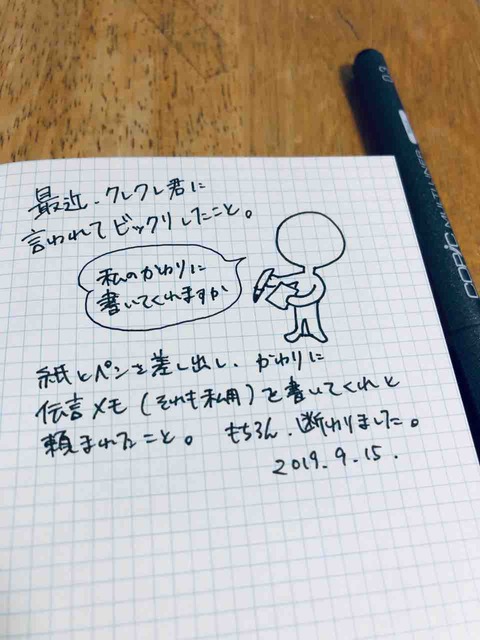 最近、クレクレ君に
言われてビックリしたこと。
私のかわりに
書いてくれますか
紙とペンを差し出し、かわりに
伝言メモ(それも私用)を書いてくれと
頼まれたこと。もちろん、断わりました。
2019.9.15.
0.3
COPIC MULTILINER